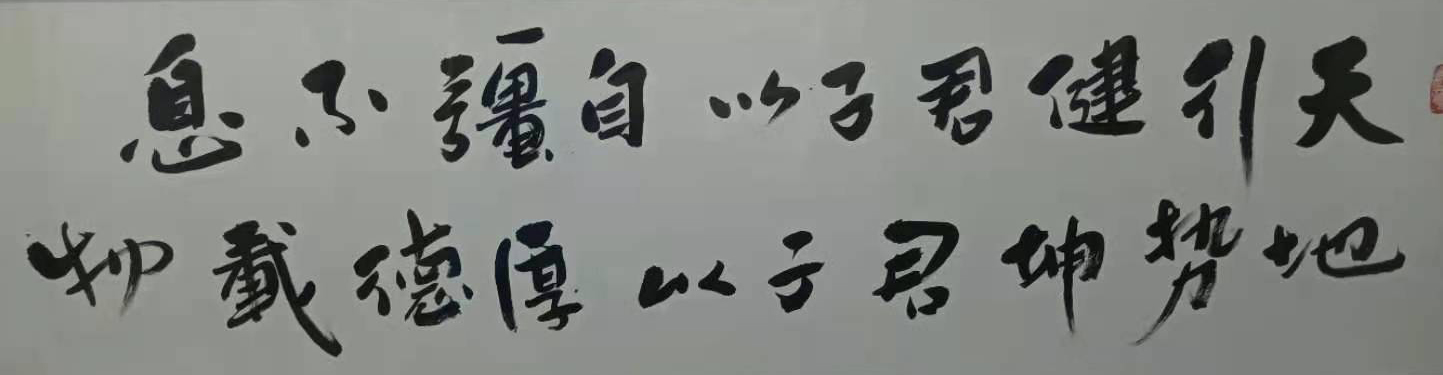 天行健君子以自疆不息
地势坤君子以厚德载物